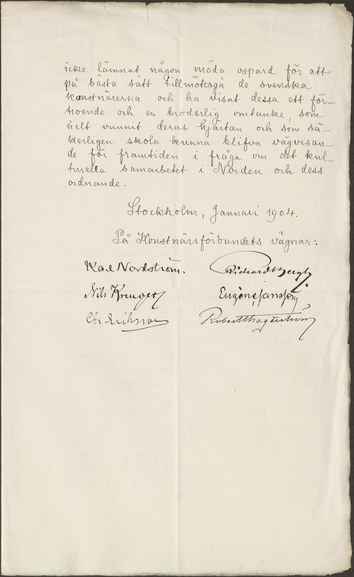 icke lämnat någon möda ospard för att
på bästa sätt tillmötesgå de svenska
konstnärerna och ha visat dessa ett för-
troende och en broderlig omtanke, som
helt vunnit deras hjärtan och som sä-
kerligen skola kunna blifva vägvisan
de för framtiden i fråga om det kul-
turella samarbetet i Norden och dess
ordnande.
Stockholm, Januari 1904.
På Konstnärsförbundets vägnar:
Karl Nordström. Richard Bergh
Nils Kreuger Eugène Jansson
Chr Eriksson Robert Thegerström